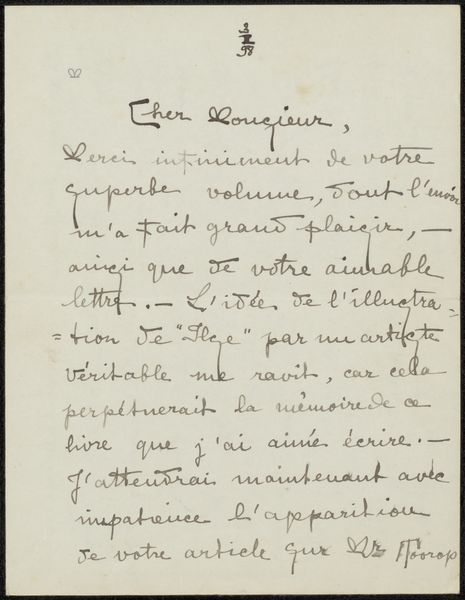 3
II
98
Cher Monsieur,
Merci infiniment de votre
superbe volume, dont l'envoi
m'a fait grand plaisir, —
ainsi que de votre aimable
lettre. — L'idée de l'illustra-
=tion de "Ilse" par un artiste
véritable me ravit, car cela
perpétuerait la mémoire de ce
livre que j'ai aimé écrire. —
J'attendrai maintenant avec
impatience l'apparition
de votre article sur Mr Toorop